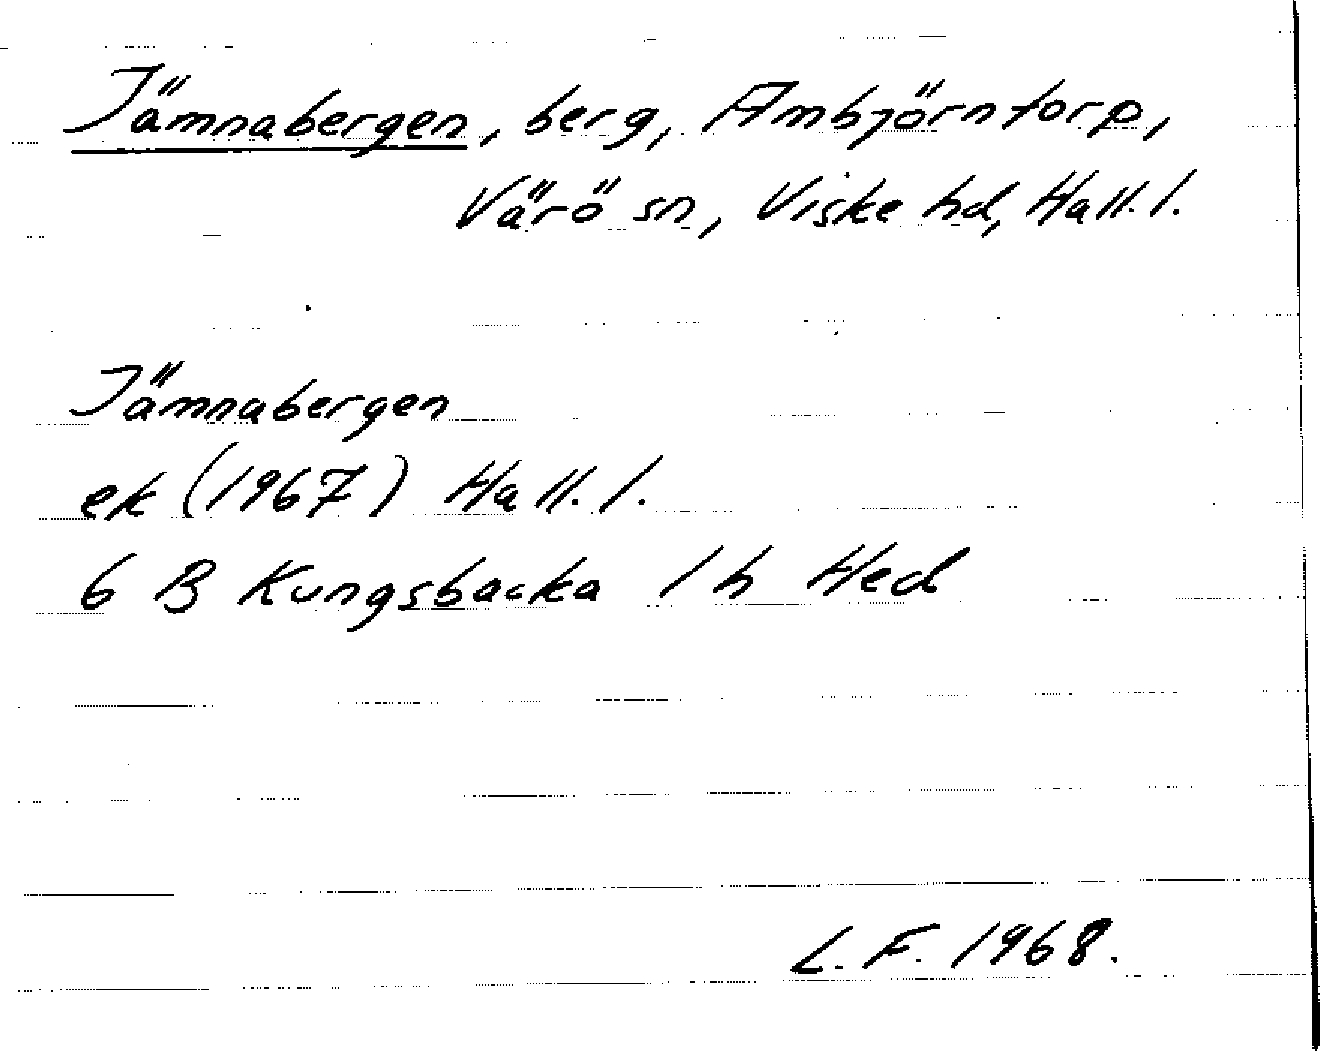 Jämnabergen, berg, Ambjörntorp,
Värö sn, Viske hd, Hall. l.
Jämnabergen
ek (1967) Hall. l.
6 B Kungsbacka 1 h Hed
L. F. 1968.